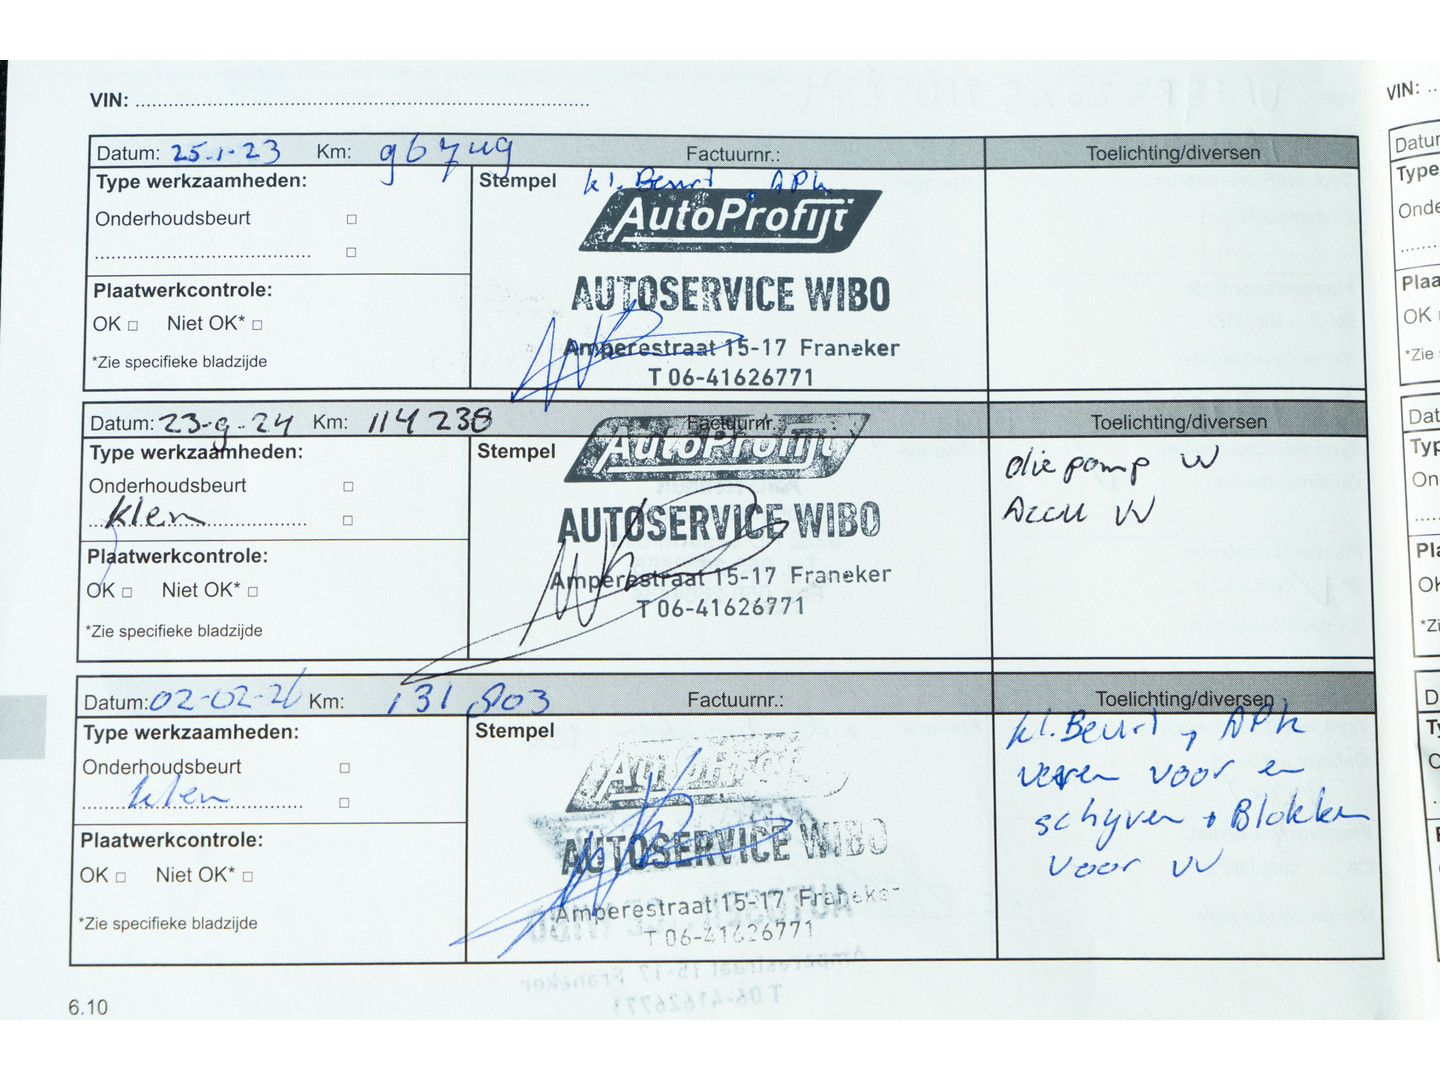 VIN: ........................................................................
Datum: 25-1-23 Km: 96749 Factuurnr.: Toelichting/diversen
Type werkzaamheden:
Stempel kl. Beurt, APK
Onderhoudsbeurt □
....................................... □
Plaatwerkcontrole:
OK □ Niet OK* □
*Zie specifieke bladzijde
AutoProfijt
AUTOSERVICE WIBO
Amperestraat 15-17 Franeker
T 06-41626771
Datum: 23-9-24 Km: 114238 Factuurnr.: Toelichting/diversen
Type werkzaamheden:
Stempel
Onderhoudsbeurt □
klein □
Plaatwerkcontrole:
OK □ Niet OK* □
*Zie specifieke bladzijde
AutoProfijt
AUTOSERVICE WIBO
Amperestraat 15-17 Franeker
T 06-41626771
oliepomp VV
Accu VV
Datum: 02-02-26 Km: 131.803 Factuurnr.: Toelichting/diversen
Type werkzaamheden:
Stempel
Onderhoudsbeurt □
klein □
Plaatwerkcontrole:
OK □ Niet OK* □
*Zie specifieke bladzijde
AutoProfijt
AUTOSERVICE WIBO
Amperestraat 15-17 Franeker
T 06-41626771
kl. Beurt, APK
veren voor en
schijven + Blokken
voor VV
6.10
VIN: ..